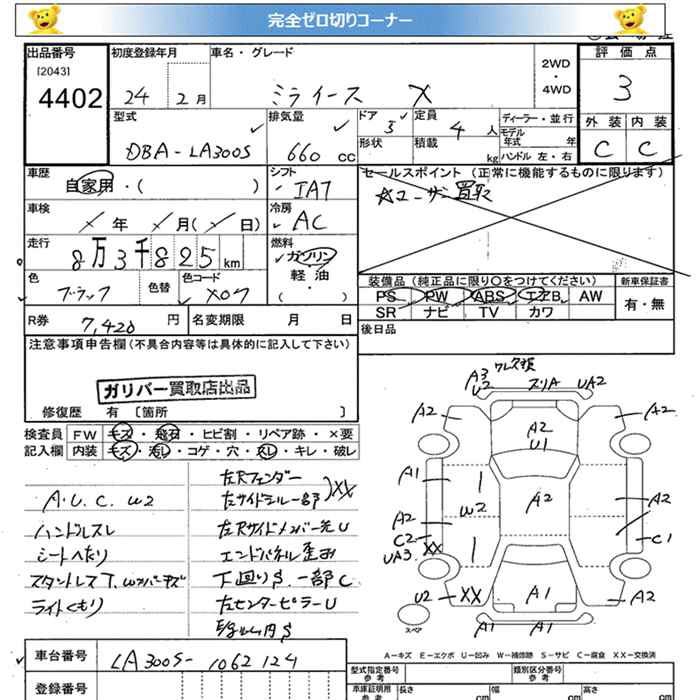 完全ゼロ切りコーナー
出品番号 初度登録年月 車名・グレード 評価点
[2043]
4402 24 2月 ミライース X 2WD・4WD 3
型式 排気量 ドア 定員 ディーラー・並行 外装 内装
DBA-LA300S 660 cc 5 4人 モデル年式 年 C C
形状 積載 kg ハンドル 左・右
車歴 シフト セールスポイント (正常に機能するものに限ります)
自家用・( ) IAT ☆ユーザー買取
車検 年 月( 日) 冷房 AC
走行 燃料
8万3千825km ガソリン
軽油
( )
色 色替 色コード 装備品 (純正品に限り〇をつけてください) 新車保証書
ブラック X07 PS PW ABS エアB AW 有・無
SR ナビ TV カワ
R券 7,420円 名変期限 月 日 後日品
注意事項申告欄 (不具合内容等は具体的に記入して下さい)
ガリバー買取店出品
修復歴 有 [箇所 ]
検査員 FW キズ・飛石・ヒビ割・リペア跡・×要
記入欄 内装 キズ・汚し・コゲ・穴・スレ・キレ・破レ
A.U.C.W2
ハンドルスレ
シートヘたり
ライトくもり
左Rフェンダー
左サイドシル一部 XX
左Rサイドメンバー先U
エンドパネル歪み
下廻りS.一部C
左センターピラーU
A3 ワレ欠損
U2 スリA UA2
A2 A2
A2
U1
A1 A2 A2
W2
A2
C2 C1
UA3 XX
U2 XX A1 A2
スペア A1 A1
A-キズ E-エクボ U-凹み W-補修跡 S-サビ C-腐食 XX-交換済
車台番号 LA300S-1062124
型式指定番号 参考 類別区分番号 参考
登録番号 車庫証明用 参考 長さ cm 幅 cm 高さ cm